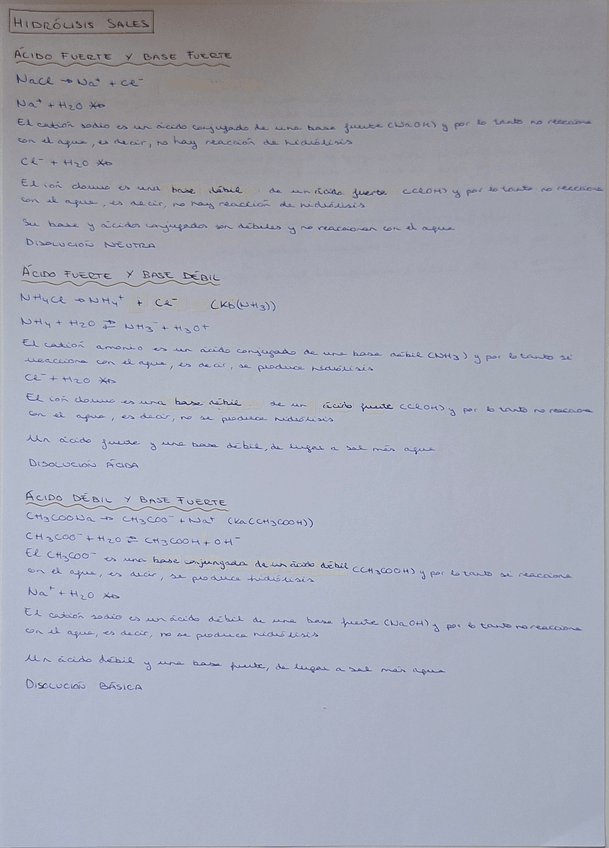 HIDRÓLISIS SALES
ÁCIDO FUERTE Y BASE FUERTE
NaCl → Na⁺ + Cl⁻
Na⁺ + H₂O ↛
El catión sodio es un ácido conjugado de una base fuerte (NaOH) y por lo tanto no reacciona
con el agua, es decir, no hay reacción de hidrólisis
Cl⁻ + H₂O ↛
El ión cloruro es una base débil de un ácido fuerte (ClOH) y por lo tanto no reacciona
con el agua, es decir, no hay reacción de hidrólisis
Su base y ácidos conjugados son débiles y no reaccionan con el agua
DISOLUCIÓN NEUTRA
ÁCIDO FUERTE Y BASE DÉBIL
NH₄Cl → NH₄⁺ + Cl⁻ (Kb(NH₃))
NH₄ + H₂O ⇄ NH₃⁻ + H₃O⁺
El catión amonio es un ácido conjugado de una base débil (NH₃) y por lo tanto sí
reacciona con el agua, es decir, se produce hidrólisis
Cl⁻ + H₂O ↛
El ión cloruro es una base débil de un ácido fuerte (ClOH) y por lo tanto no reacciona
con el agua, es decir, no se produce hidrólisis
Un ácido fuerte y una base débil, da lugar a sal más agua
DISOLUCIÓN ÁCIDA
ÁCIDO DÉBIL Y BASE FUERTE
CH₃COONa → CH₃COO⁻ + Na⁺ (Ka(CH₃COOH))
CH₃COO⁻ + H₂O ⇄ CH₃COOH + OH⁻
El CH₃COO⁻ es una base conjungada de un ácido débil (CH₃COOH) y por lo tanto se reacciona
con el agua, es decir, se produce hidrólisis
Na⁺ + H₂O ↛
El catión sodio es un ácido débil de una base fuerte (NaOH) y por lo tanto no reacciona
con el agua, es decir, no se produce hidrólisis
Un ácido débil y una base fuerte, da lugar a sal más agua
DISOLUCIÓN BÁSICA